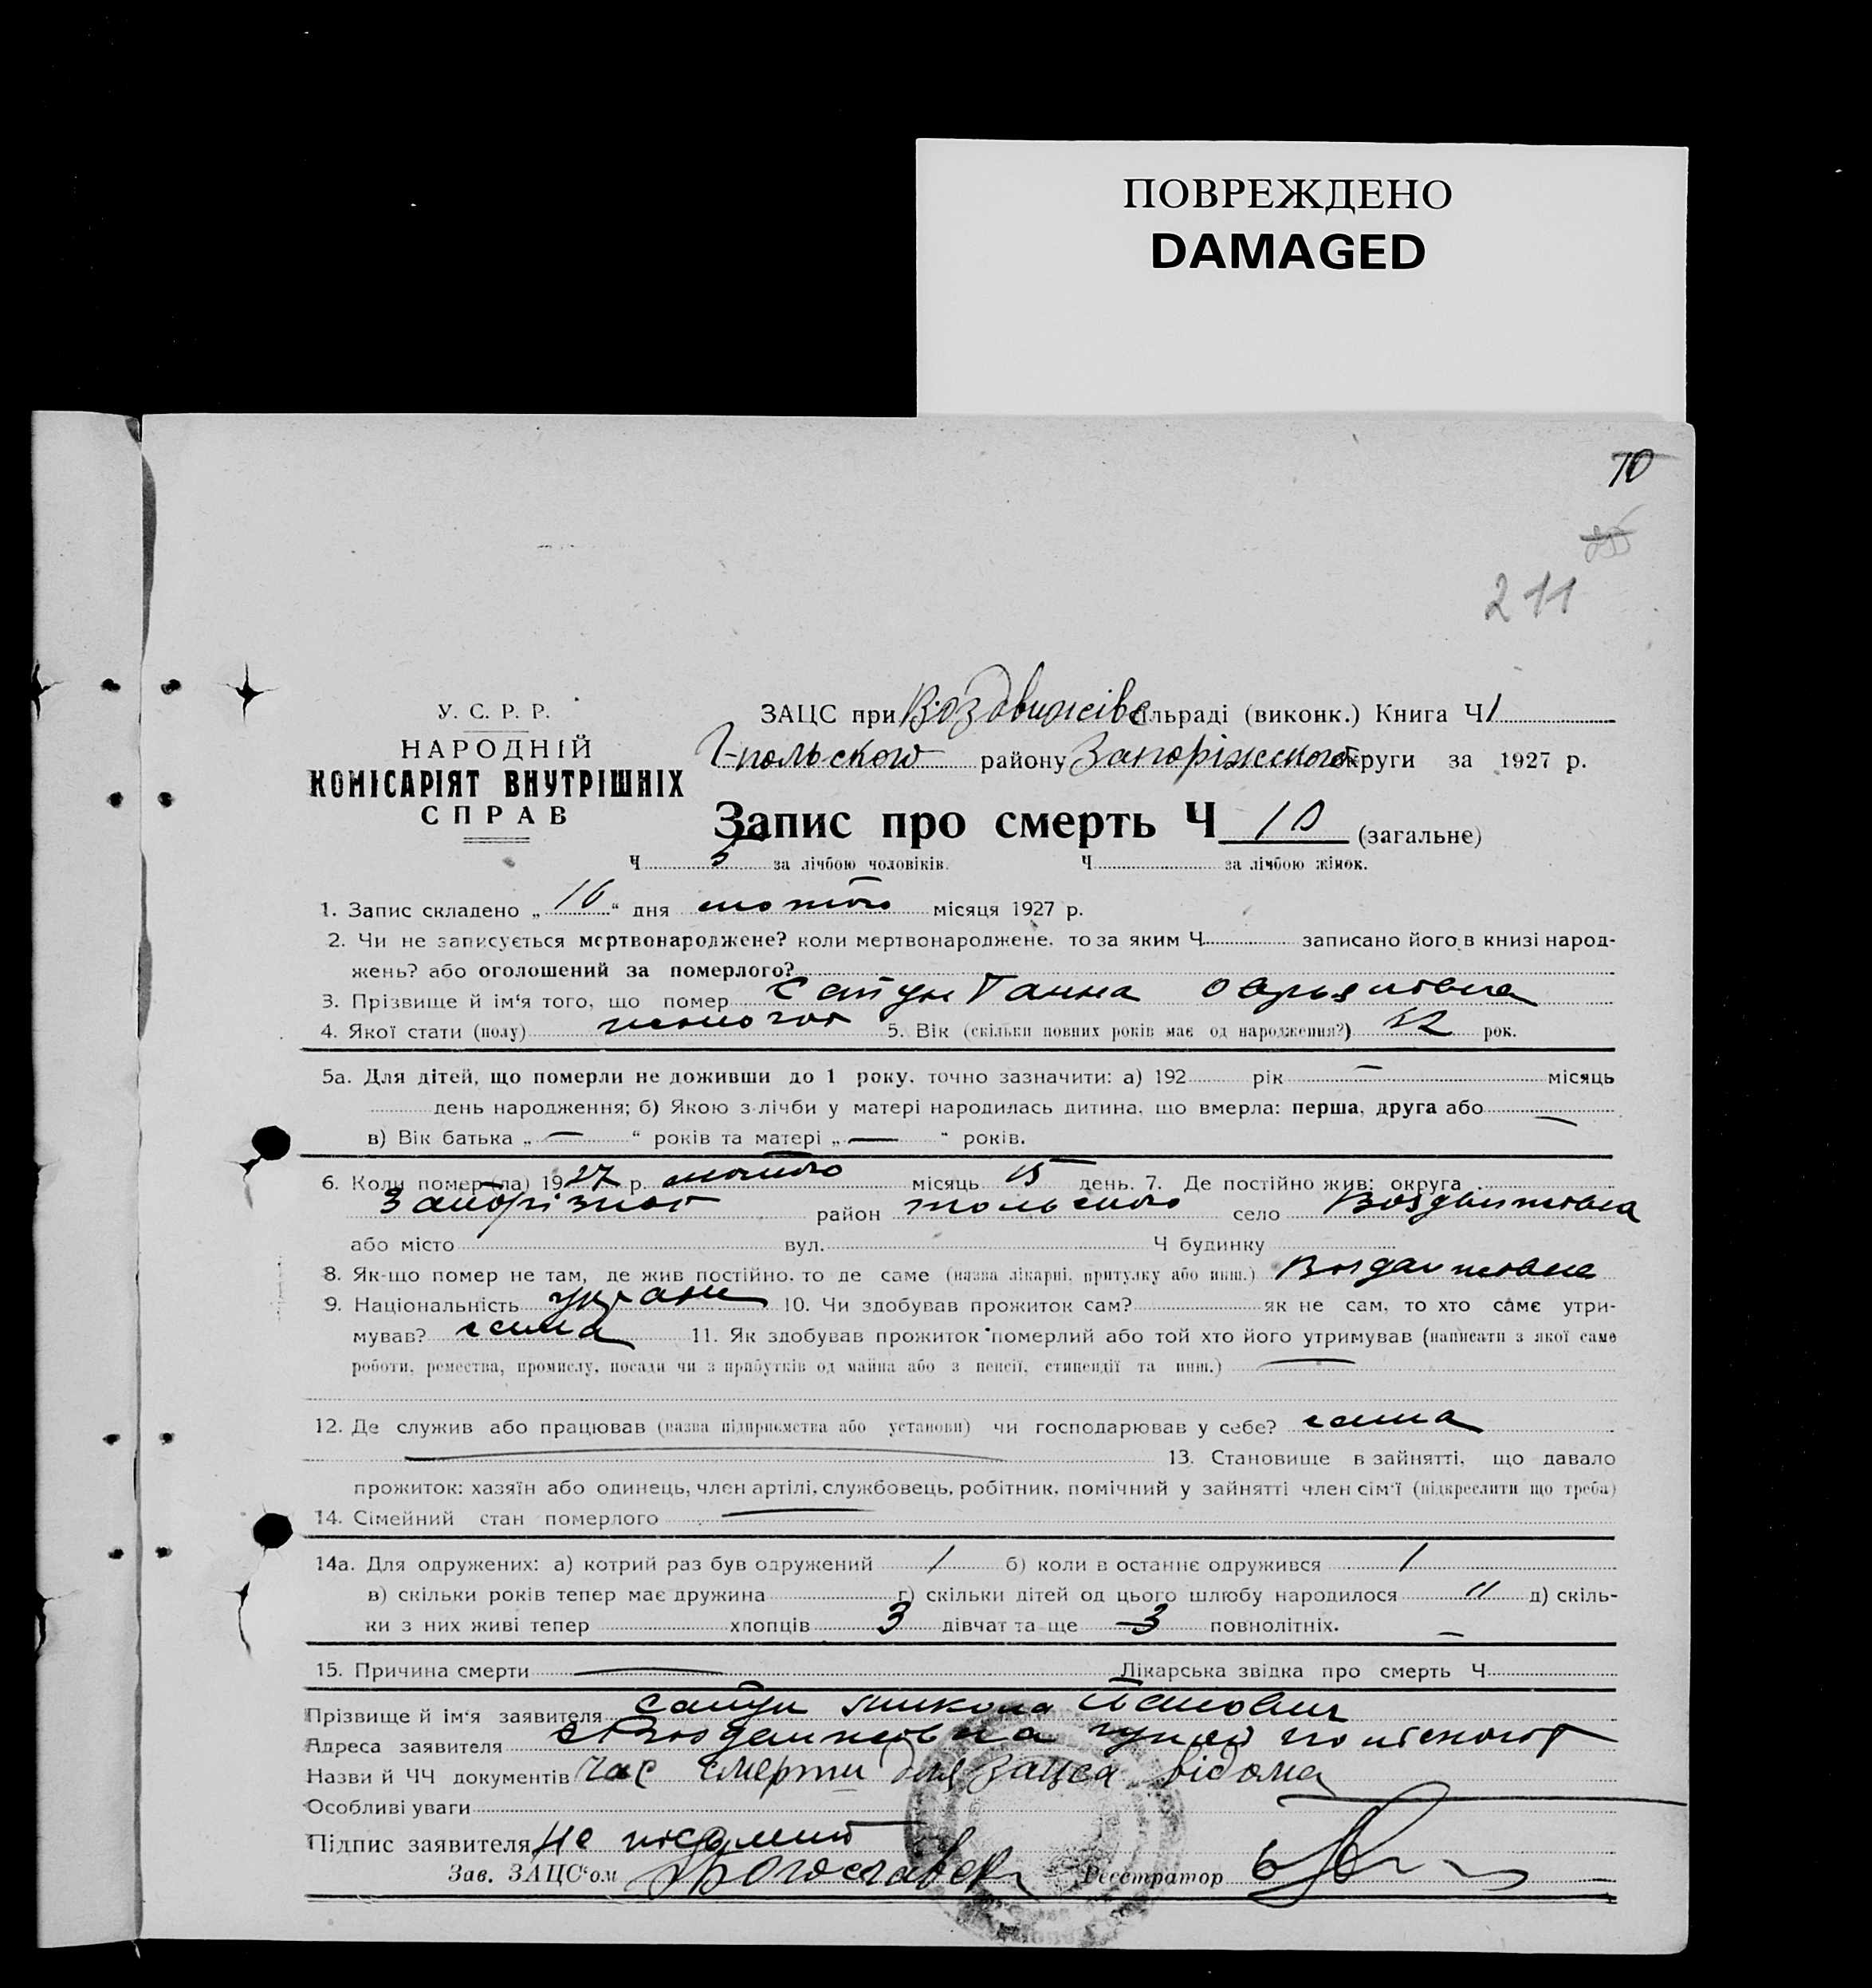 ПОВРЕЖДЕНО
DAMAGED
70
211
У. С. Р. Р.
НАРОДНІЙ
КОМІСАРІЯТ ВНУТРІШНІХ
СПРАВ
ЗАЦС при Воздвижівс сільраді (виконк.) Книга Ч 1
Г-польского району Запоріжського округи за 1927 р.
Запис про смерть Ч 10 (загальне)
Ч 5 за лічбою чоловіків. Ч за лічбою жінок.
1. Запис складено „ 16 “ дня лютого місяця 1927 р.
2. Чи не записується мертвонароджене? коли мертвонароджене, то за яким Ч записано його в книзі народ-
жень? або оголошений за померлого?
3. Прізвище й ім'я того, що помер Ганна
4. Якої стати (полу) 5. Вік (скільки повних років має од народження?) 52 рок.
5а. Для дітей, що померли не доживши до 1 року, точно зазначити: а) 192 рік — місяць
день народження; б) Якою з-лічби у матері народилась дитина, що вмерла: перша, друга або —
в) Вік батька „ — “ років та матері „ — “ років.
6. Коли помер(ла) 1927 р. лютого місяць 15 день. 7. Де постійно жив: округа
район польского село Воздвижівка
або місто вул. Ч будинку
8. Як-що помер не там, де жив постійно, то де саме (назва лікарні, притулку або инш.) Воздвижівка
9. Національність 10. Чи здобував прожиток сам? як не сам, то хто саме утри-
мував? сама 11. Як здобував прожиток померлий або той хто його утримував (написати з якої саме
роботи, ремества, промислу, посади чи з прибутків од майна або з пенсії, стипендії та инш.) —
12. Де служив або працював (назва підприємства або установи) чи господарював у себе? сама
13. Становище в зайнятті, що давало
прожиток: хазяїн або одинець, член артілі, службовець, робітник, помічний у зайнятті член сім'ї (підкреслити що треба)
14. Сімейний стан померлого —
14а. Для одружених: а) котрий раз був одружений 1 б) коли в останнє одружився 1
в) скільки років тепер має дружина г) скільки дітей од цього шлюбу народилося 11 д) скіль-
ки з них живі тепер хлопців 3 дівчат та ще 3 повнолітніх. —
15. Причина смерти — Лікарська звідка про смерть Ч
Прізвище й ім'я заявителя Микола
Адреса заявителя с Воздвижівка
Назви й ЧЧ документів Час смерти для Зацса відома
Особливі уваги
Підпис заявителя не
Зав. ЗАЦС'ом Реєстратор